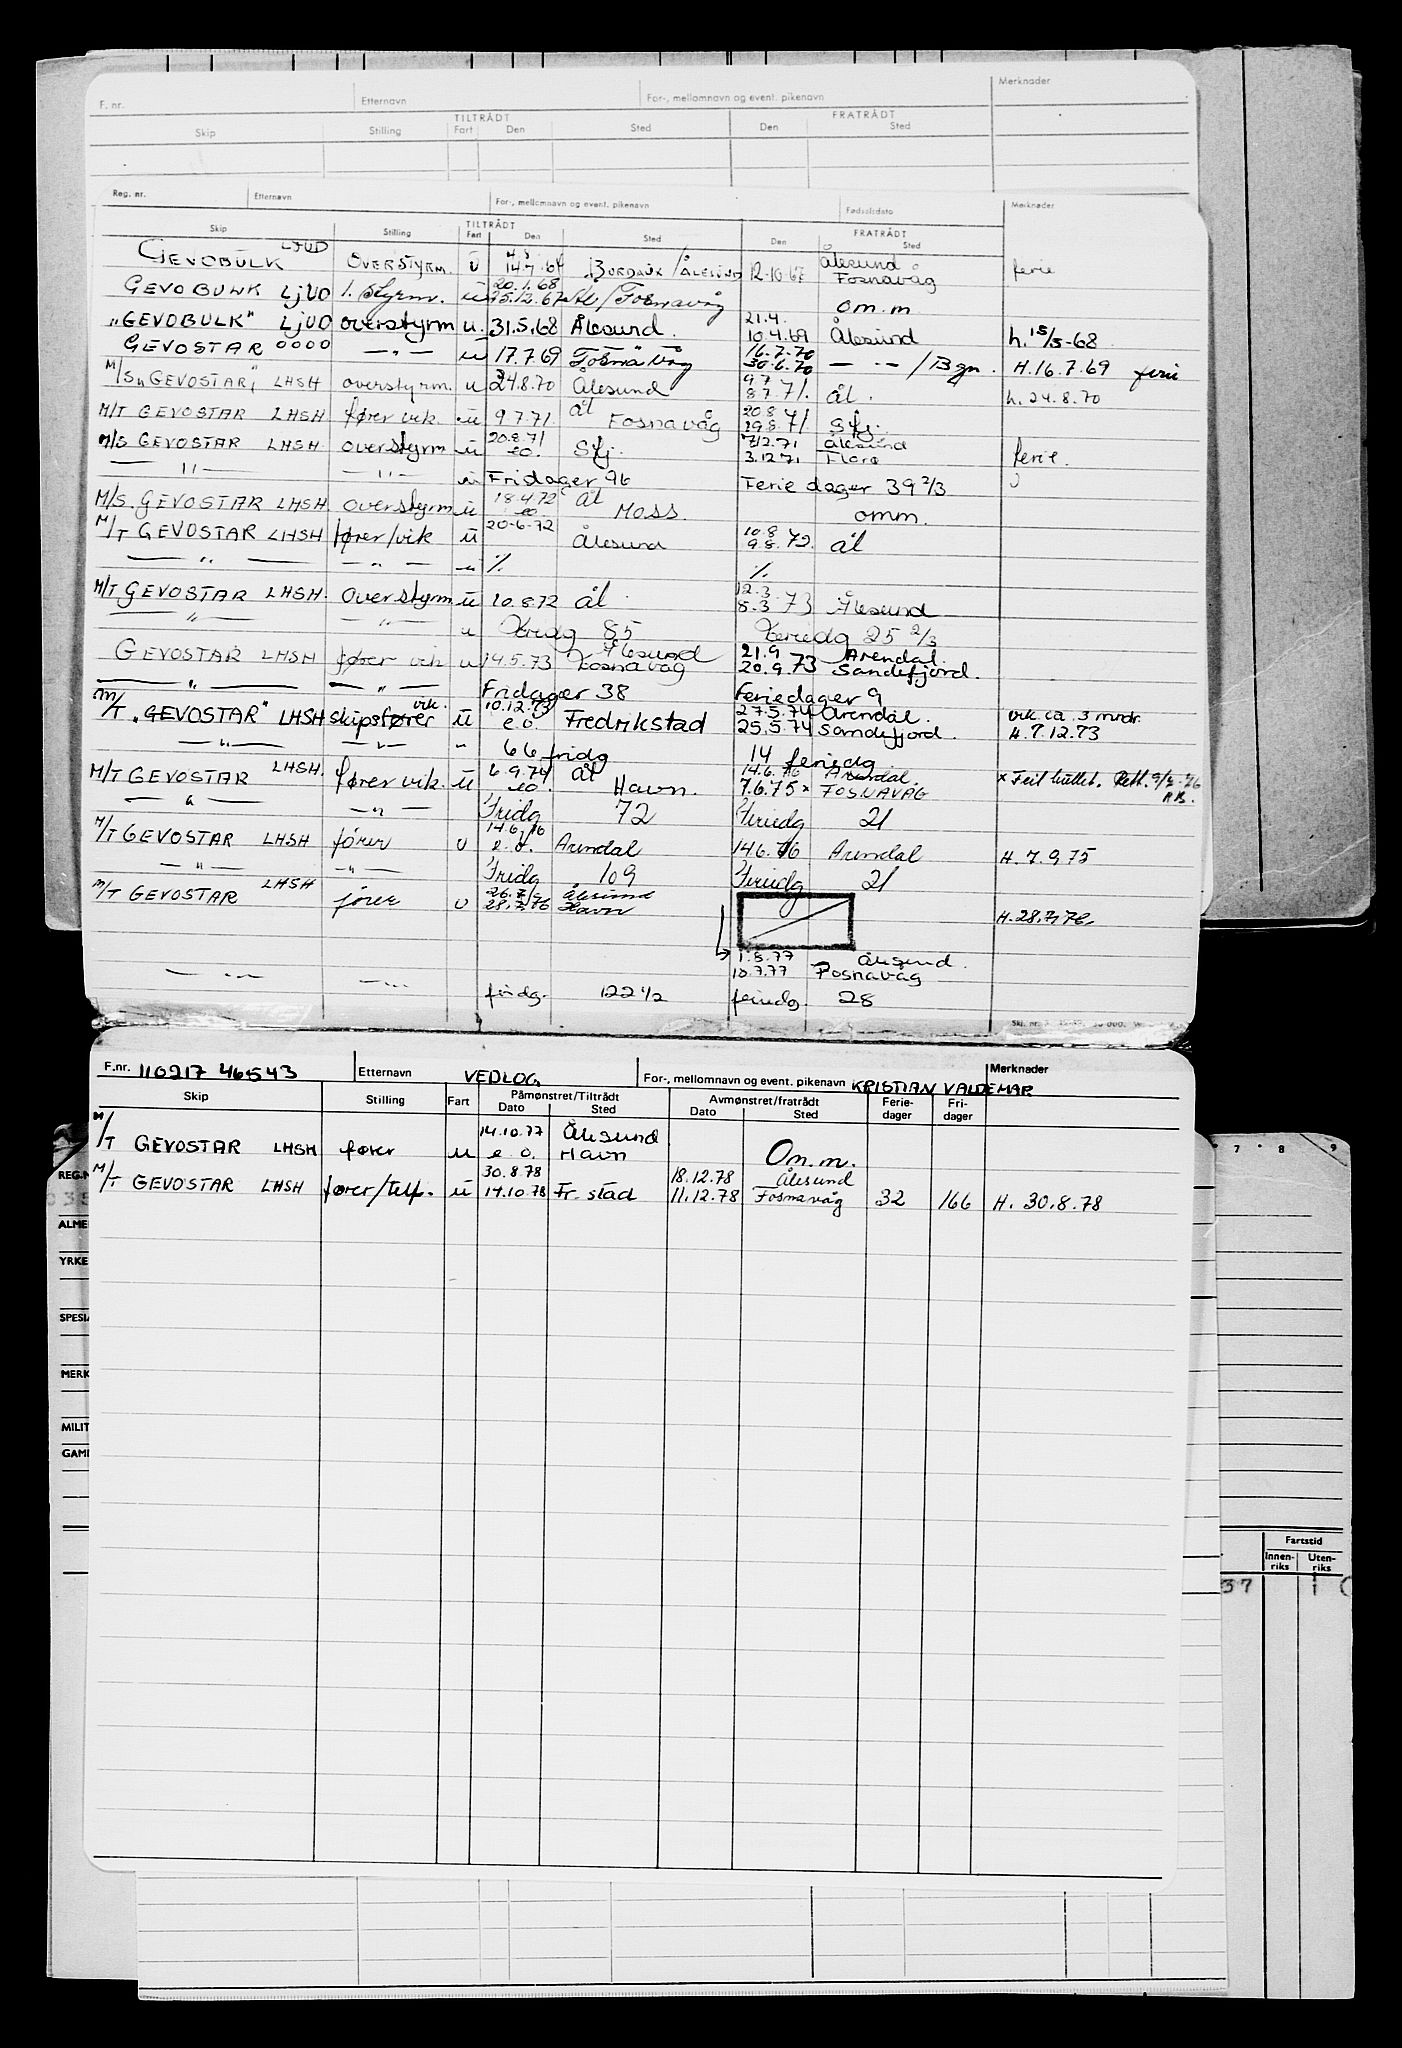 F. nr. Etternavn For-, mellomnavn og event. pikenavn Merknader
TILTRÅDT FRATRÅDT
Skip Stilling Fart Den Sted Den Sted
Reg. nr. Etternavn For-, mellomnavn og event. pikenavn Fødselsdato Merknader
TILTRÅDT FRATRÅDT
Skip Stilling Fart Den Sted Den Sted
LJUD 4.8 Ålesund
GEVOBULK OVERSTYRM. U 14.7.67 BORDAUX/ÅLESUND 12.10.67 Fosnavåg ferie
20.1.68
GEVOBULK LJUO 1. Styrm. u 25.12.67 Ål/Fosnavåg om.m
21.4.
"GEVOBULK" LJUO overstyrm u. 31.5.68 Ålesund. 10.4.69 Ålesund h. 15/5-68
16.7.70
GEVOSTAR 0000 —"— u 17.7.69 Fosnavåg 30.6.70 — " — /Bgn. H.16.7.69 ferie
9.7
M/S "GEVOSTAR" LHSH overstyrm. u 24.8.70 Ålesund 8.7.71. ål. h. 24.8.70
ål 20.8
M/T GEVOSTAR LHSH fører vik. u 9.7.71 Fosnavåg 19.8.71 Sfj.
20.8.71 7.12.71 Ålesund
M/S GEVOSTAR LHSH overstyrm u e.o. Sfj. 3.12.71 Florø ferie.
— " — — " — u Fridager 96 Ferie dager 39 2/3
18.4.72 ål
M/S. GEVOSTAR LHSH overstyrm u e.o. Moss. omm.
20.6.72 10.8
M/T GEVOSTAR LHSH fører/vik u Ålesund 9.8.72. ål
— " — — " — u % %
12.3
M/T GEVOSTAR LHSH. overstyrm u 10.8.72 ål. 8.3.73 Ålesund
— " — — " — u Fridg 85 Feriedg 25 2/3
Ålesund 21.9 Arendal
GEVOSTAR LHSH fører vik u 14.5.73 Fosnavåg 20.9.73 Sandefjord.
— " — — " — Fridager 38 Feriedager 9
vik. 10.12.73 27.5.74 Arendal. vik. ca. 3 mndr.
M/T "GEVOSTAR" LHSH skipsfører u e.o. Fredrikstad 25.5.74 Sandefjord. H.7.12.73
— " — — " — " 66 fridg 14 feriedg
6.9.74 ål 14.6.76 Arendal
M/T GEVOSTAR LHSH. fører vik. u e.o. Havn. 7.6.75 x FOSNAVÅG x Feil
— " — — " — Fridg 72 Feriedg 21
14.6.76
M/T GEVOSTAR LHSH fører u e.o. Arendal 14.6.76 Arendal H. 7.9.75
— " — — " — Fridg 109 Feriedg 21
26.7.76 Ålesund
M/T GEVOSTAR LHSH fører u 28.7.76 Havn H.28.7.76.
1.8.77 Ålesund.
10.7.77 Fosnavåg
— " — — " — fridg. 122 1/2 feriedg. 28
F.nr. 110217 46543 Etternavn VEDLOG For-, mellomnavn og event. pikenavn KRISTIAN VALDEMAR Merknader
Skip Stilling Fart Påmønstret/Tiltrådt Avmønstret/fratrådt Ferie- Fri-
Dato Sted Dato Sted dager dager
14.10.77 Ålesund
M/T GEVOSTAR LHSH fører u e.o. Havn Om.m.
30.8.78 18.12.78 Ålesund
M/T GEVOSTAR LHSH fører/telf. u 14.10.78 Fr.stad 11.12.78 Fosnavåg 32 166 H. 30.8.78
7 8 9
REG.N
ALME
YRKE
SPESIA
MERK
MILIT
GAM
Fartstid
Innen- Uten-
riks riks
37 1